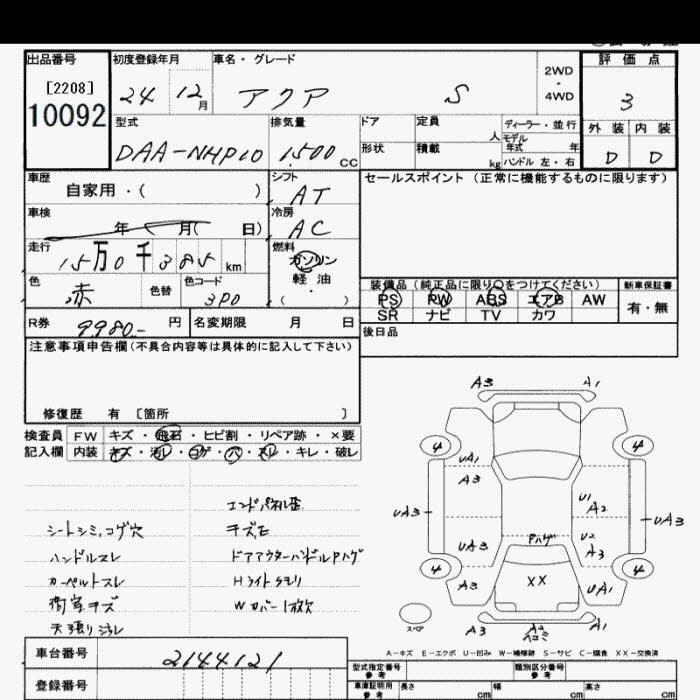 出品番号 初度登録年月 車名・グレード 評価点
[2208] 24 12月 アクア S 2WD・4WD 3
10092
型式 排気量 ドア 定員 人 ディーラー・並行 外装 内装
DAA-NHP10 1,500 CC 形状 積載 kg モデル年式 年 ハンドル 左・右 D D
車歴 自家用・( ) シフト AT セールスポイント(正常に機能するものに限ります)
車検 年 月( 日) 冷房 AC
走行 15万0千385km 燃料 ガソリン
軽油
( )
色 赤 色替 色コード 3P0
装備品(純正品に限り○をつけてください) 新車保証書
PS PW ABS エアB AW 有・無
SR ナビ TV カワ
R券 9980.- 円 名変期限 月 日 後日品
注意事項申告欄(不具合内容等は具体的に記入して下さい)
修復歴 有 〔箇所 〕
検査員 FW キズ・飛石・ヒビ割・リペア跡・×要
記入欄 内装 キズ・汚レ・コゲ・穴・スレ・キレ・破レ
シートシミ、コゲ穴
ハンドルスレ
カーペットスレ
荷室キズ
天張りヨゴレ
エンドパネル歪
キズ有
ドアアウターハンドルPハゲ
Hライトクモリ
Wカバー1枚欠
A3 A1
4 4
UA1
A3
U1
A2
UA3 UA3
UA3 Pハゲ U2
A3
4 4
A3 XX UA1
スペア A3 A2 A1
A-キズ E-エクボ U-凹み W-補修跡 S-サビ C-腐食 XX-交換済
車台番号 2144121
登録番号
型式指定番号 参考 類別区分番号 参考
車庫証明用 参考 長さ cm 幅 cm 高さ cm